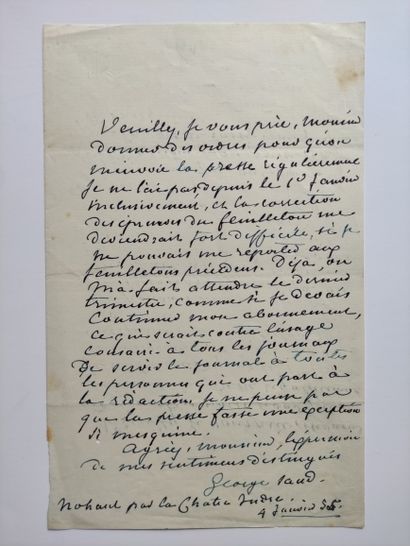 Veuillez, je vous prie, monsieur
donner des ordres pour qu'on
m'envoie la presse régulièrement
Je ne l'ai pas depuis le 1er Janvier
inclusivement, et la correction
des épreuves du feuilleton me
deviendrait fort difficile, si je
ne pouvais me reporter aux
feuilletons précédens. Déjà, on
m'a fait attendre le dernier
trimestre, comme si je devais
continuer mon abonnement,
ce qui serait contre l'usage
consacré à tous les journaux
De servir le journal à toutes
les personnes qui ont part à
la rédaction, je ne pense pas
que la presse fasse une exception
si mesquine.
Agréez, monsieur, l'expression
de mes sentimens distingués
George Sand.
Nohant par la Châtre Indre.
4 Janvier